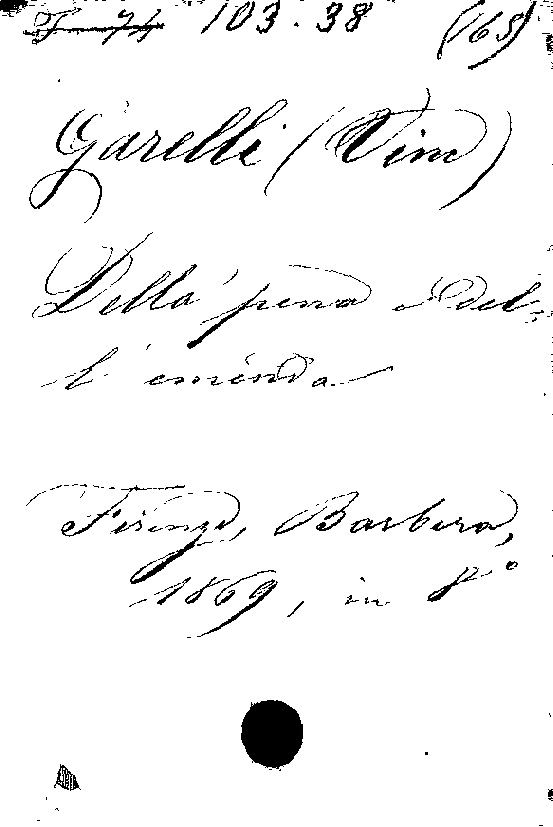 F 74 103.38 (165)
Garelli (Vinc)
Della pena e del-
l' emenda
Firenze, Barbera,
1869, in 8°